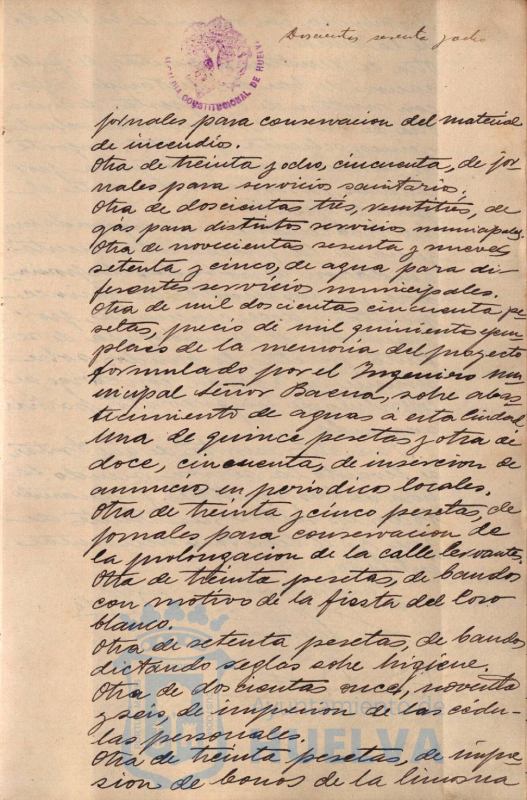 Doscientos sesenta y ocho
ALCALDIA CONSTITUCIONAL DE HUELVA
jornales para conservacion del material
de incendio.
Otra de treinta y ocho, cincuenta, de jor-
nales para servicios sanitario.
Otra de doscientas tres, ventitres, de
gas para distintos servicios municipales
Otra de novecientas sesenta y nueve,
setenta y cinco, de agua para di-
ferentes servicios municipales.
Otra de mil doscientas cincuenta pe-
setas, precio de mil quinientos ejem-
plares de la memoria del proyecto
formulado por el Ingeniero mu-
nicipal Señor Baena, sobre abas-
tecimiento de aguas á esta Ciudad
Una de quince pesetas y otra de
doce, cincuenta, de insercion de
anuncio en periodico locales.
Otra de treinta y cinco pesetas, de
jornales para conservacion de
la prolongacion de la calle Cervantes.
Otra de treinta pesetas, de bandos
con motivo de la fiesta del Coso
blanco.
Otra de setenta pesetas, de bandos
dictando reglas sobre higiene.
Otra de doscientas once, noventa
y seis, de impresion de las cedu-
las personales.
Otra de treinta pesetas, de impre-
sion de bonos de la limosna
Ayuntamiento de
HUELVA